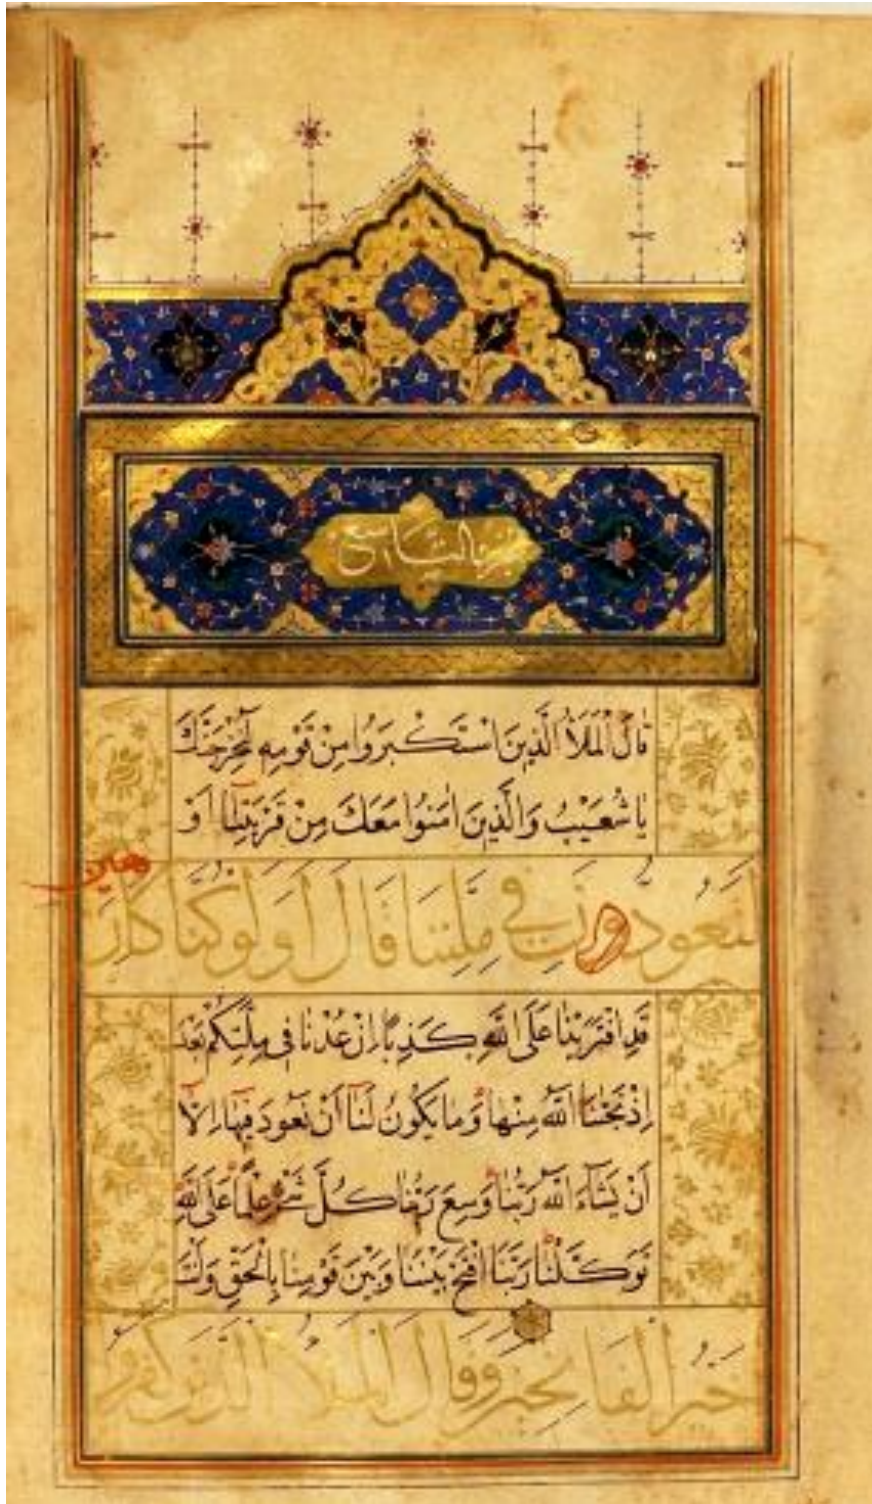 جزء التاسع
قَالَ الْمَلَأُ الَّذِينَ اسْتَكْبَرُوا مِنْ قَوْمِهِ لَنُخْرِجَنَّكَ
يَا شُعَيْبُ وَالَّذِينَ اٰمَنُوا مَعَكَ مِنْ قَرْيَتِنَا اَوْ
لتعودن في ملتنا قال اولو كنا كارهين
قَدِ افْتَرَيْنَا عَلَى اللّٰهِ كَذِبًا اِنْ عُدْنَا فِي مِلَّتِكُمْ بَعْدَ
اِذْ نَجّٰنَا اللّٰهُ مِنْهَا وَمَا يَكُونُ لَنَا اَنْ نَعُودَ فِيهَا اِلَّا
اَنْ يَشَاءَ اللّٰهُ رَبُّنَا وَسِعَ رَبُّنَا كُلَّ شَيْءٍ عِلْمًا عَلَى اللّٰهِ
تَوَكَّلْنَا رَبَّنَا افْتَحْ بَيْنَنَا وَبَيْنَ قَوْمِنَا بِالْحَقِّ وَاَنْتَ
خير الفاتحين وقال الملأ الذين كفروا